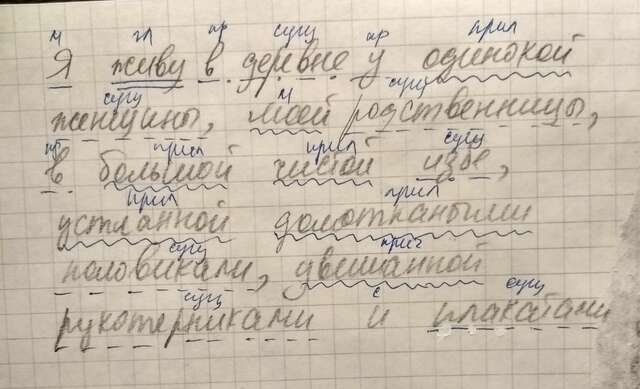 м гл пр сущ пр прил
Я живу в деревне у одинокой
сущ м сущ
женщины, моей родственницы,
пр прил прил сущ
в большой чистой избе,
прил прил
устланной домоткаными
сущ прич
половиками, увешанной
сущ с сущ
рукотерниками и плакатами